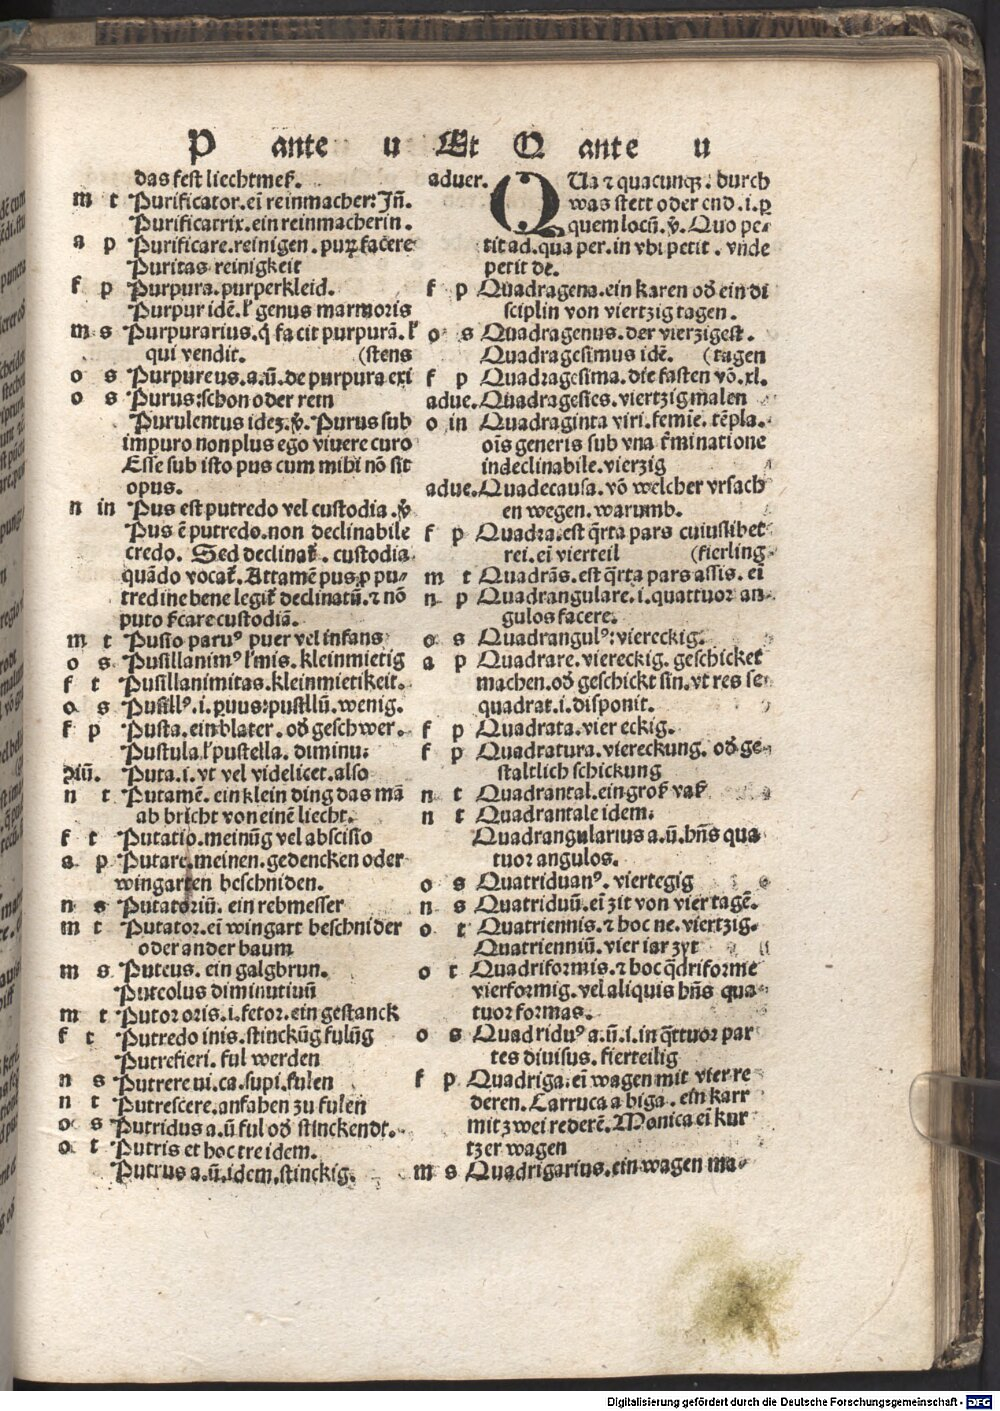 P ante u Et Q ante u
das fest liechtmeß.
m t Purificator. eī reinmacher: Jn̄.
Purificatrix. ein reinmacherin.
a p Purificare. reinigen. puꝝ facere
Puritas reinigkeit
f p Purpura. purperkleid.
Purpur idē. ł genus marmoris
m s Purpurarius. q̇ facit purpurā. ł
qui vendit. (stens
o s Purpureus. a. ū. de purpura exi
o s Purus: schon oder rein
Purulentus ideꝫ. ꝟ. Purus sub
impuro non plus ego viuere curo
Esse sub isto pus cum mihi nō sit
opus.
n in Pus est putredo vel custodia. ꝟ
Pus ē putredo. non declinabile
credo. Sed declinat̄. custodia
quādo vocat̄. Attamē pus ꝓ pu⸗
tredine bene legit̄ declinatū. ⁊ nō
puto
m t Pusio paruꝰ puer vel infans
o s Pusillanimꝰ kleinmietig
f t Pusillanimitas. kleinmietikeit.
o s Pusillꝰ. i. ꝑuus: pusillū. wenig.
f p Pusta. ein blater. od̄ geschwer.
Pustula ł pustella. diminu:
Aiū. Puta. i. vt vel videlicet. also
n t Putamē. ein klein ding das mā
ab bricht von einē liecht.
f t Putatio. meinūg vel abscisio
a p Putare. meinen. gedencken oder
wingarten beschniden.
n s Putatoriū. ein rebmesser
m t Putator. eī wingart beschnider
oder ander baum
m s Puteus. ein galgbrun.
Puteolus diminutiuū
m t Putor oris. i. fetor. ein gestanck
f t Putredo inis. stinckūg fulūg
Putrefieri. ful werden
n s Putrere ui. ca. supi. fulen
n t Putrescere. anfahen zu fulen
o s Putridus a. ū ful od̄ stinckendt.
o t Putris et hoc tre idem.
Putrus a. ū. idem. stinckig.
aduer. QUa ⁊ quacunqꝫ. durch
was stett oder end. i. ꝑ
quem locū. ꝟ. Quo pe⸗
tit ad. qua per. in vbi petit. vnde
petit de.
f p Quadragena. ein karen od̄ ein di
sciplin von viertzig tagen.
o s Quadragenus. der vierzigest.
Quadragesimus idē. (tagen
f p Quadragesima. die fasten vō. xl.
adue. Quadragesies. viertzig malen
o in Quadraginta viri. femie. tēpla.
oīs generis sub vna t̄minatione
indeclinabile. vierzig
adue. Quadecausa. vō welcher vrsach
en wegen. warumb.
f p Quadra. est q̄rta pars cuiuslibet
rei. eī vierteil (fierling
m t Quadrās. est q̄rta pars assis. eī
n p Quadrangulare. i. quattuor an⸗
gulos facere.
o s Quadrangulꝰ: viereckig.
a p Quadrare. viereckig. geschicket
machen. od̄ geschickt sin. vt res se
quadrat. i. disponit.
f p Quadrata. vier eckig.
f p Quadratura. viereckung. od̄ ge⸗
staltlich schickung
n t Quadrantal. ein groß vaß
n t Quadrantale idem.
Quadrangularius a. ū. hn̄s qua
tuor angulos.
o s Quatriduanꝰ. viertegig
n s Quatriduū. ei zit von vier tagē.
o t Quatriennis. ⁊ hoc ne. viertzig.
Quatrienniū. vier iar zyt
o t Quadriformis. ⁊ hoc q̄driforme
vierformig. vel aliquis hn̄s qua⸗
tuor formas.
o s Quadriduꝰ a. ū. i. in q̄ttuor par
tes diuisus. fierteilig
f p Quadriga. eī wagen mit vier re
deren. Carruca a biga. ein karr
mit zwei rederē. Monica eī kur
tzer wagen
m s Quadrigarius. ein wagen ma⸗
Digitalisierung gefördert durch die Deutsche Forschungsgemeinschaft - DFG